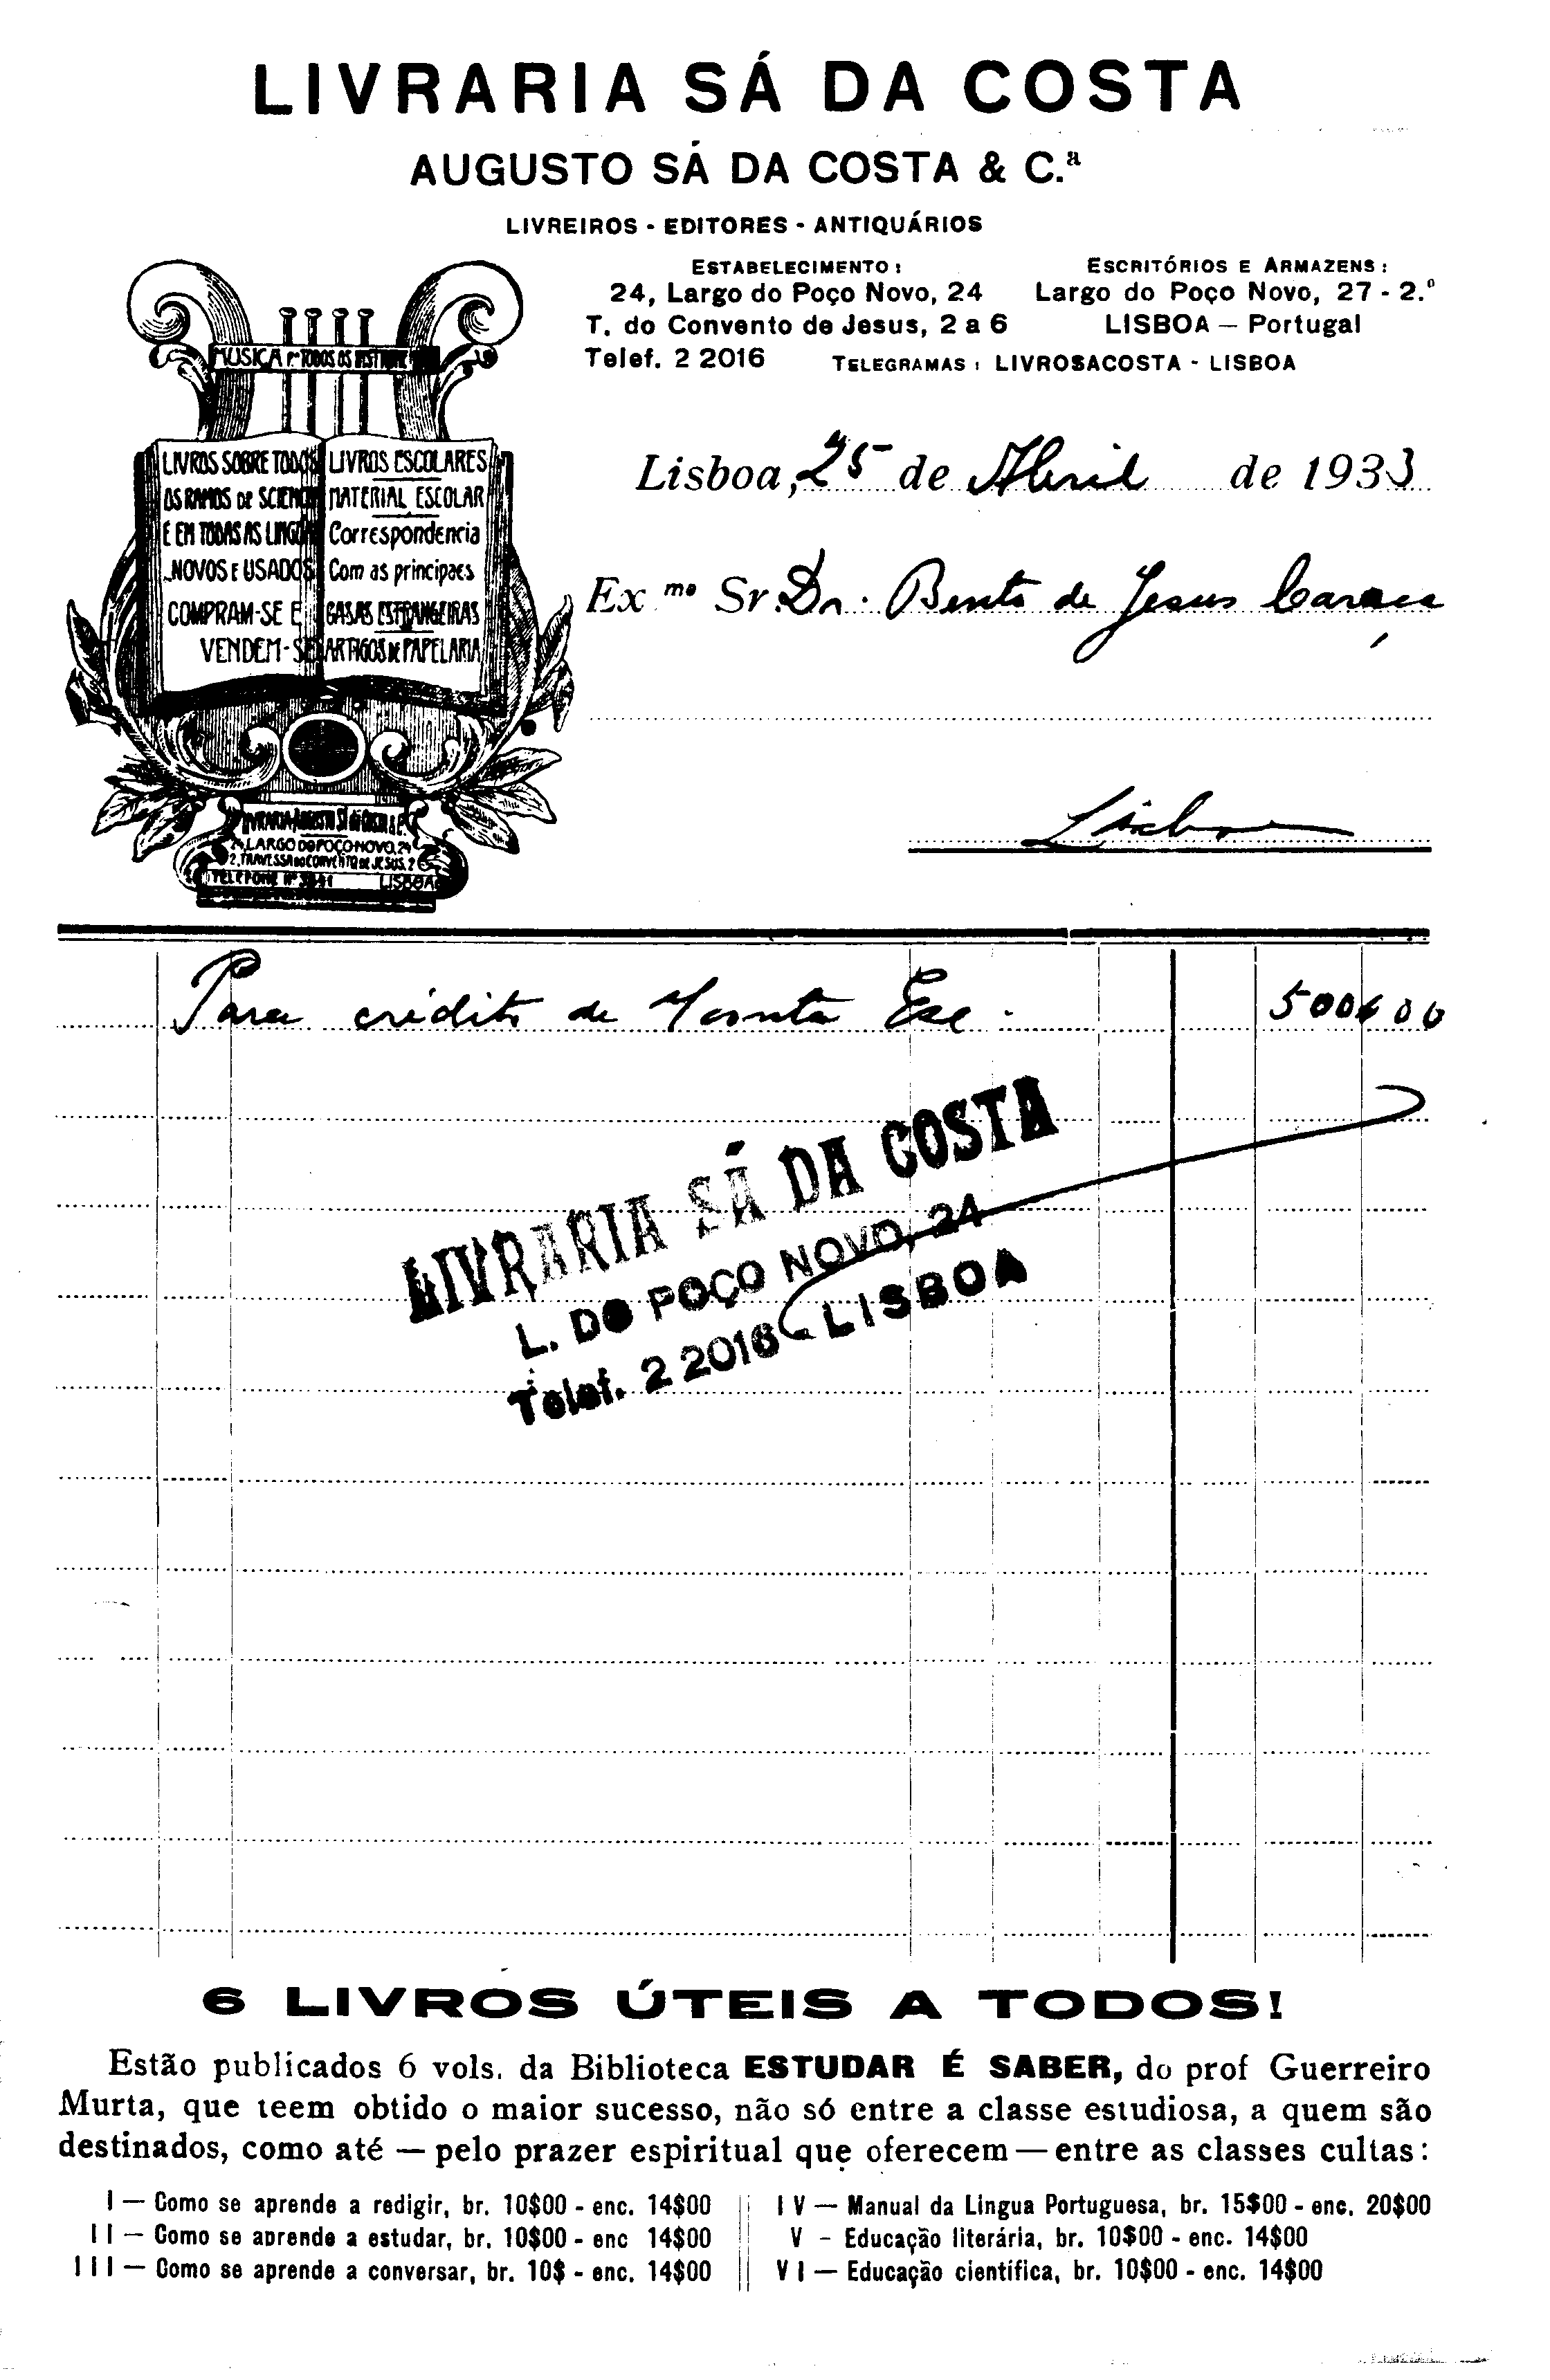 LIVRARIA SÁ DA COSTA
AUGUSTO SÁ DA COSTA & C.ª
LIVREIROS - EDITORES - ANTIQUÁRIOS
ESTABELECIMENTO:
24, Largo do Poço Novo, 24
T. do Convento de Jesus, 2 a 6
Telef. 2 2016
ESCRITÓRIOS E ARMAZENS:
Largo do Poço Novo, 27 - 2.º
LISBOA — Portugal
TELEGRAMAS: LIVROSACOSTA - LISBOA
MUSICA Pª TODOS OS
LIVROS SOBRE TODOS
OS RAMOS DE SCIENCIA
E EM TODAS AS LINGUAS
NOVOS E USADOS
COMPRAM-SE E
VENDEM-SE
LIVROS ESCOLARES
MATERIAL ESCOLAR
Correspondencia
Com as principaes
CASAS ESTRANGEIRAS
ARTIGOS DE PAPELARIA
24, LARGO DO POÇO NOVO, 24
2, TRAVESSA DO CONVENTO DE JESUS, 2
TELEFONE Nº
LISBOA
Lisboa, 25 de Abril de 1933
Ex.mo Sr. Dr. Bento de Jesus Caraça
Lisboa
Para crédito de V conta Esc. 500$00
LIVRARIA SÁ DA COSTA
L. DO POÇO NOVO, 24
Telef. 2 2016 - LISBOA
6 LIVROS ÚTEIS A TODOS!
Estão publicados 6 vols. da Biblioteca ESTUDAR É SABER, do prof Guerreiro
Murta, que teem obtido o maior sucesso, não só entre a classe estudiosa, a quem são
destinados, como até — pelo prazer espiritual que oferecem — entre as classes cultas:
I — Como se aprende a redigir, br. 10$00 - enc. 14$00
II — Como se aprende a estudar, br. 10$00 - enc 14$00
III — Como se aprende a conversar, br. 10$ - enc. 14$00
IV — Manual da Lingua Portuguesa, br. 15$00 - enc. 20$00
V - Educação literária, br. 10$00 - enc. 14$00
VI — Educação científica, br. 10$00 - enc. 14$00